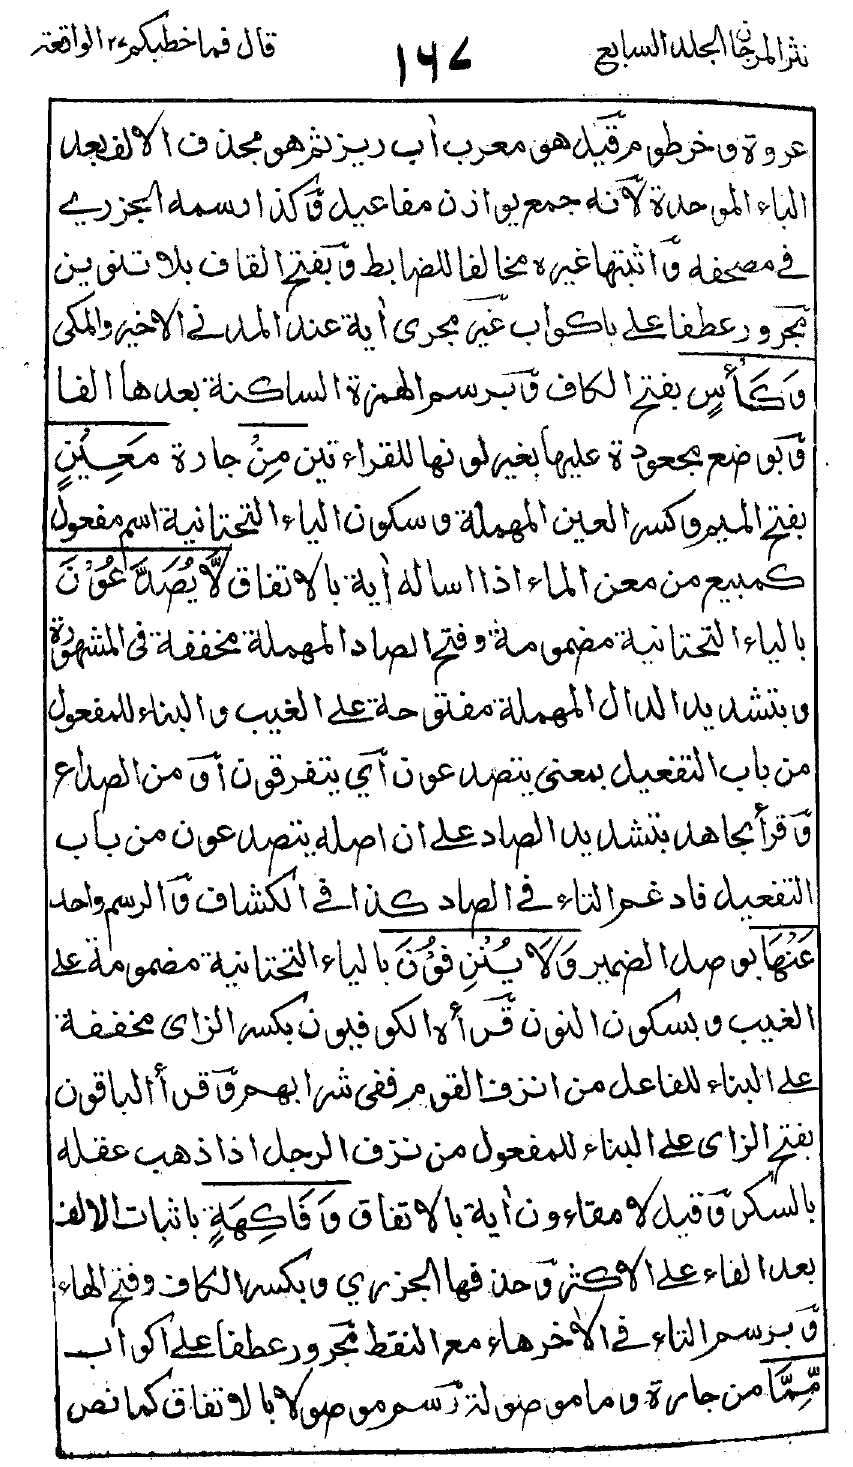 نثر المرجان الجلد السابع
١٦٧
قال فما خطبكم ٢٧ الواقعة
عروة وخرطوم وقيل هو معرب اب ريز ثم هو بحذف الالف بعد
الباء الموحدة لانه جمع يوازن مفاعيل وكذا رسمه الجزري
في مصحفه واثبتها غيره مخالفا للضابط وبفتح القاف بلا تنوين
مجرور عطفا على باكواب غير مجرى أية عند المدني الاخير والمكي
وَكَأْسٍ بفتح الكاف وبرسم الهمزة الساكنة بعدها الفا
وبوضع مجعودة عليها بغير لونها للقراءتين مِنْ جارة مَعِيْنٍ
بفتح الميم وكسر العين المهملة وسكون الياء التحتانية اسم مفعول
كمبيع من معن الماء اذا اساله أية بالاتفاق لَّا يُصَدَّعُوْنَ
بالياء التحتانية مضمومة وفتح الصاد المهملة مخففة في المشهورة
وبتشديد الدال المهملة مفتوحة على الغيب والبناء للمفعول
من باب التفعيل بمعنى يتصدعون أي يتفرقون أو من الصداع
وقرأ مجاهد بتشديد الصاد على ان اصله يتصدعون من باب
التفعيل فادغم التاء في الصاد كذا في الكشاف والرسم واحد
عَنْهَا بوصل الضمير وَلَا يُنْزِفُوْنَ بالياء التحتانية مضمومة على
الغيب وبسكون النون قرأه الكوفيون بكسر الزاى مخففة
على البناء للفاعل من انزف القوم ففى شرابهم وقرأ الباقون
بفتح الزاى على البناء للمفعول من نزف الرجل اذا ذهب عقله
بالسكر وقيل لا مقاءون أية بالاتفاق وَفَاكِهَةٍ باثبات الالف
بعد الفاء على الاكثر وحذفها الجزري وبكسر الكاف وفتح الهاء
وبرسم التاء في الأخر هاء مع النقط مجرور عطفا على اكواب
مِّمَّا من جارة وما موصولة رسم موصولا بالاتفاق كما نص